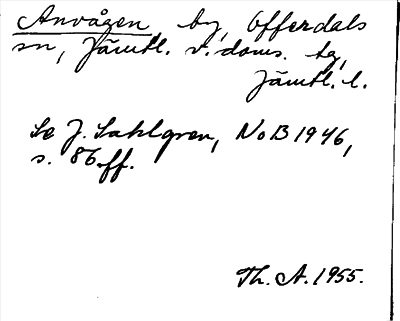 Anvågen by, Offerdals
sn, Jämtl. v. doms. tg,
Jämtl. l.
Se J. Sahlgren, NoB 1946,
s. 86 ff.
Th. A. 1955.